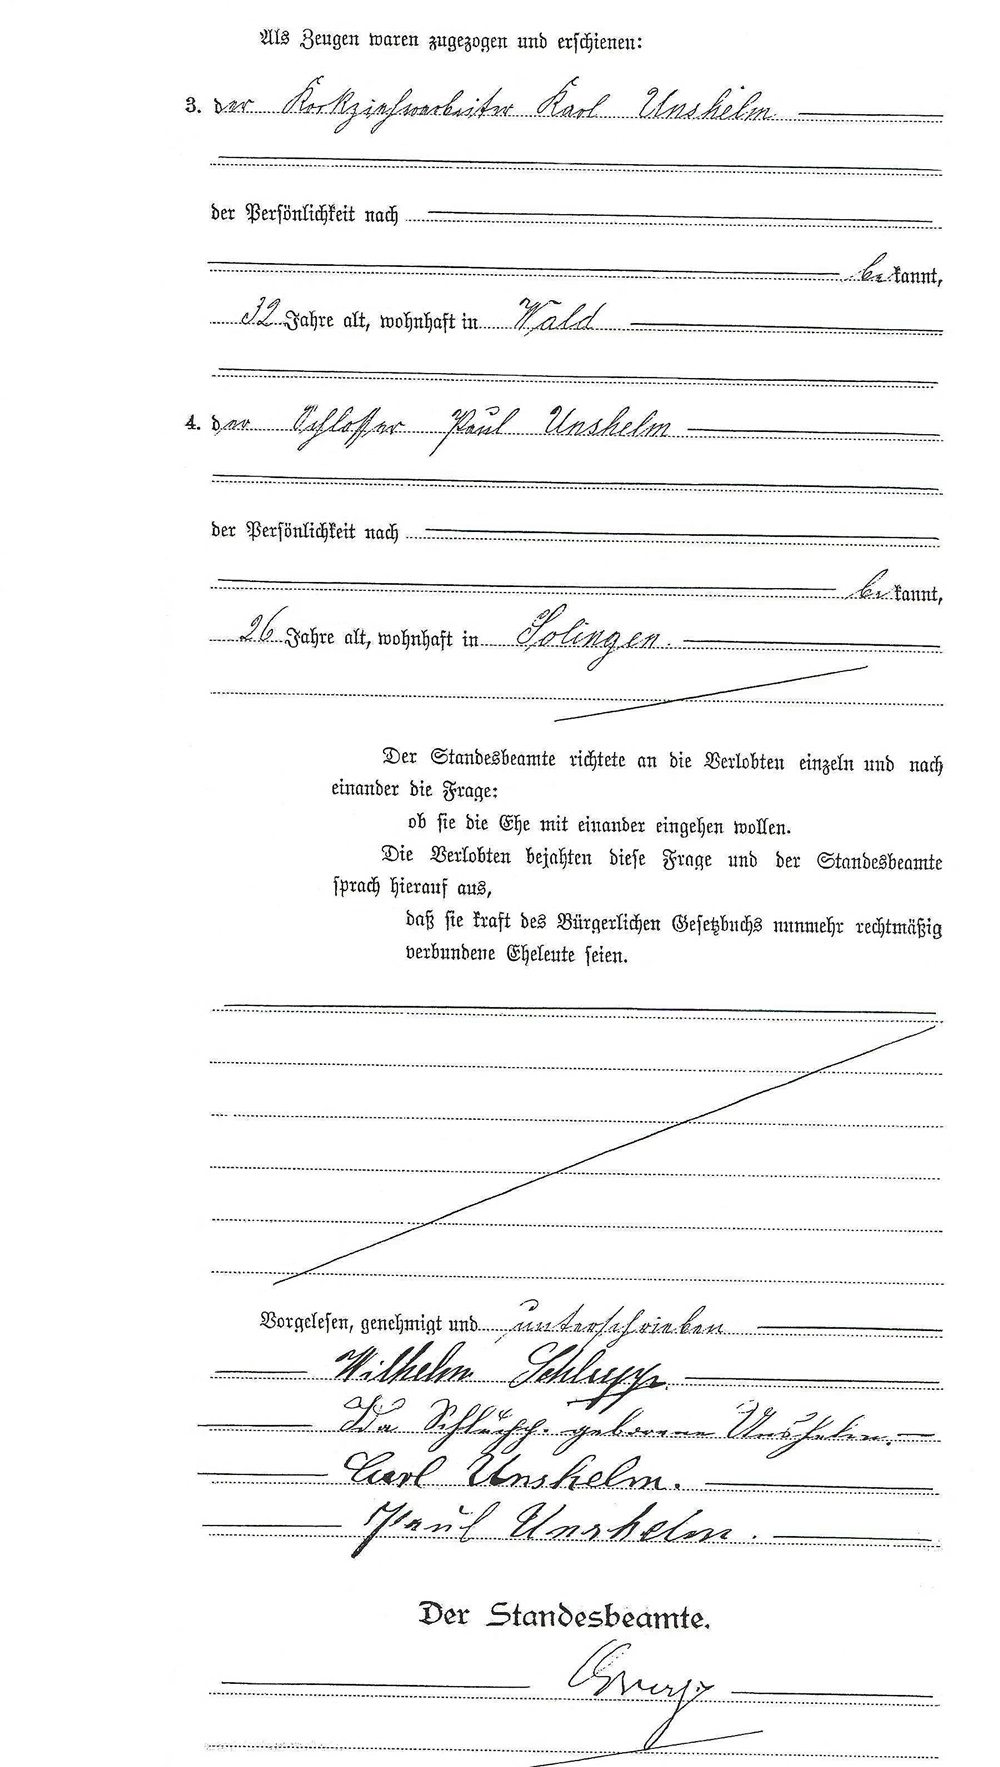 Als Zeugen waren zugezogen und erschienen:
3. der Korkzieherarbeiter Karl Unshelm
der Persönlichkeit nach
bekannt,
32 Jahre alt, wohnhaft in Wald
4. der Schlosser Paul Unshelm
der Persönlichkeit nach
bekannt,
26 Jahre alt, wohnhaft in Solingen.
Der Standesbeamte richtete an die Verlobten einzeln und nach
einander die Frage:
ob sie die Ehe mit einander eingehen wollen.
Die Verlobten bejahten diese Frage und der Standesbeamte
sprach hierauf aus,
daß sie kraft des Bürgerlichen Gesetzbuchs nunmehr rechtmäßig
verbundene Eheleute seien.
Vorgelesen, genehmigt und unterschrieben
Wilhelm Schlupp.
Ida Schlupp. geborene Unshelm.
Carl Unshelm.
Paul Unshelm.
Der Standesbeamte.